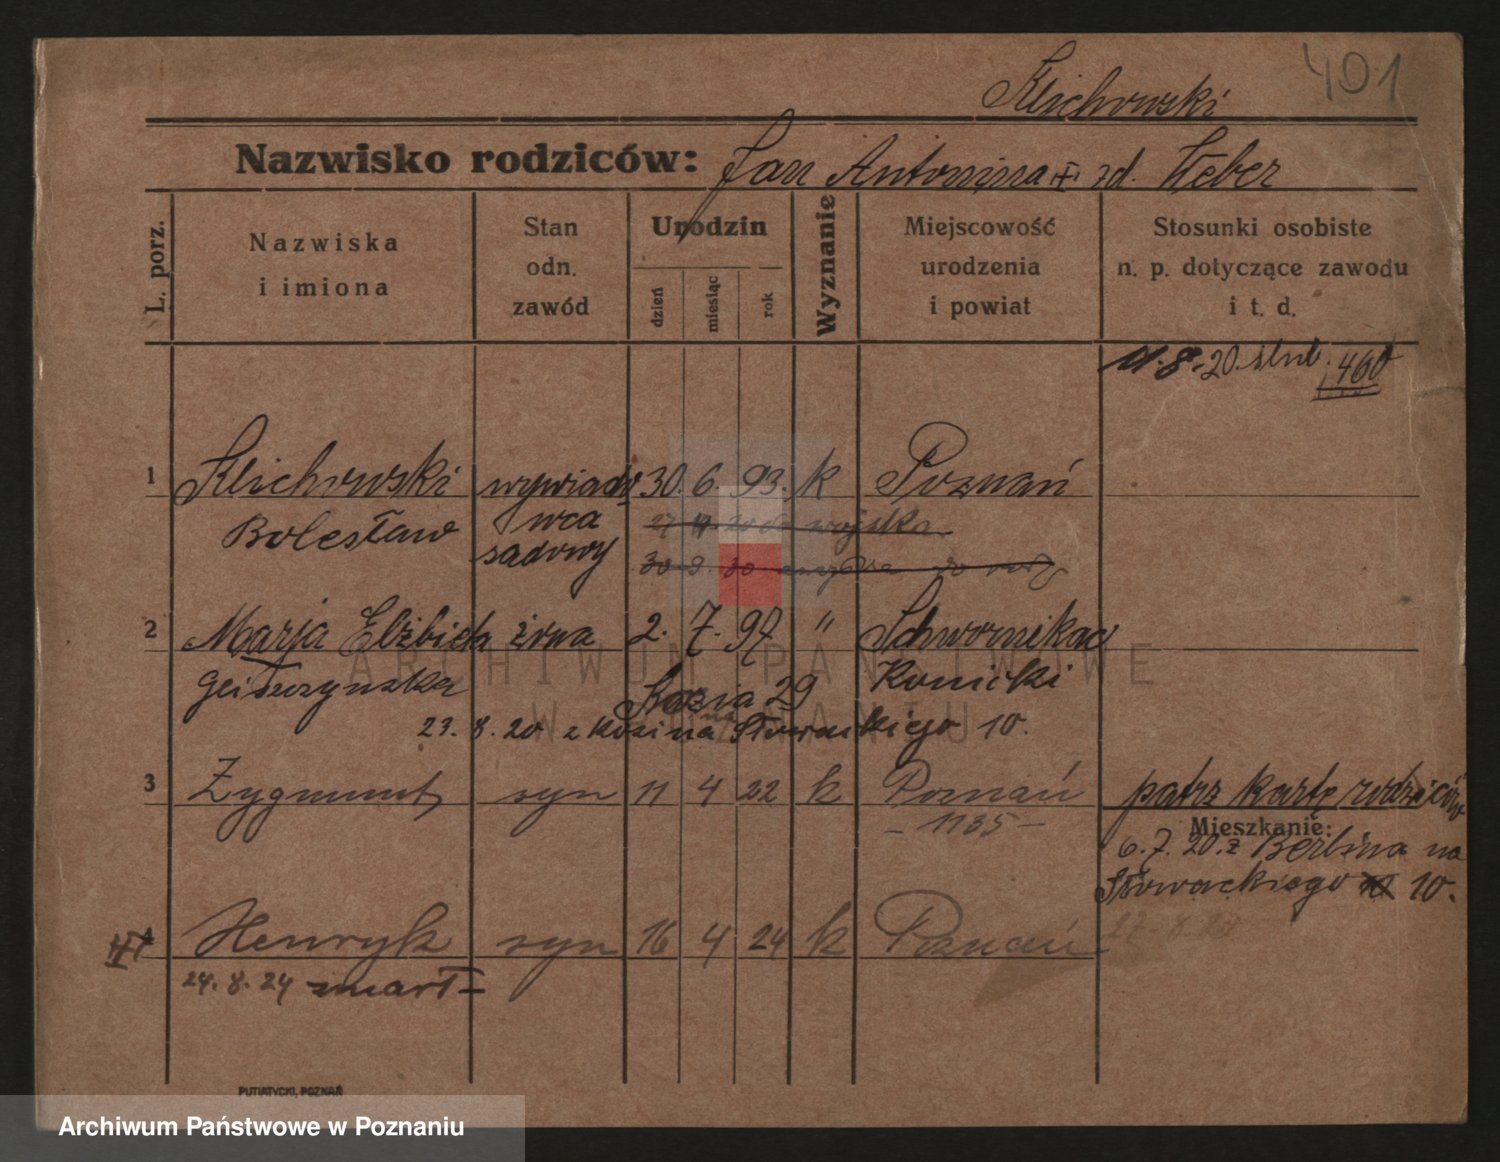 401
Klichowski
Nazwisko rodziców: Jan Antonina zd. Weber
L. porz.
Nazwiska i imiona
Stan odn. zawód
Urodzin
dzień miesiąc rok
Wyznanie
Miejscowość urodzenia i powiat
Stosunki osobiste n. p. dotyczące zawodu i t. d.
11.8.20. ślub. 460
1 Klichowski wywiado 30. 6. 93. k Poznań
Bolesław wca
sądowy
27 20 do wojska
30 9. 30
2 Marja Elżbieta żona 2. 7. 97 "
Konicki
29
23. 8. 20 z na Słowackiego 10.
3 Zygmunt syn 11 4 22 k Poznań
- 1135 -
patrz kartę rodziców
Mieszkanie:
6. 7. 20. z Berlina na
Słowackiego 10.
4 Henryk syn 16 4 24 k Poznań
24. 8. 24 zmarł
PUTIATYCKI, POZNAŃ
ARCHIWUM PAŃSTWOWE
W POZNANIU
Archiwum Państwowe w Poznaniu